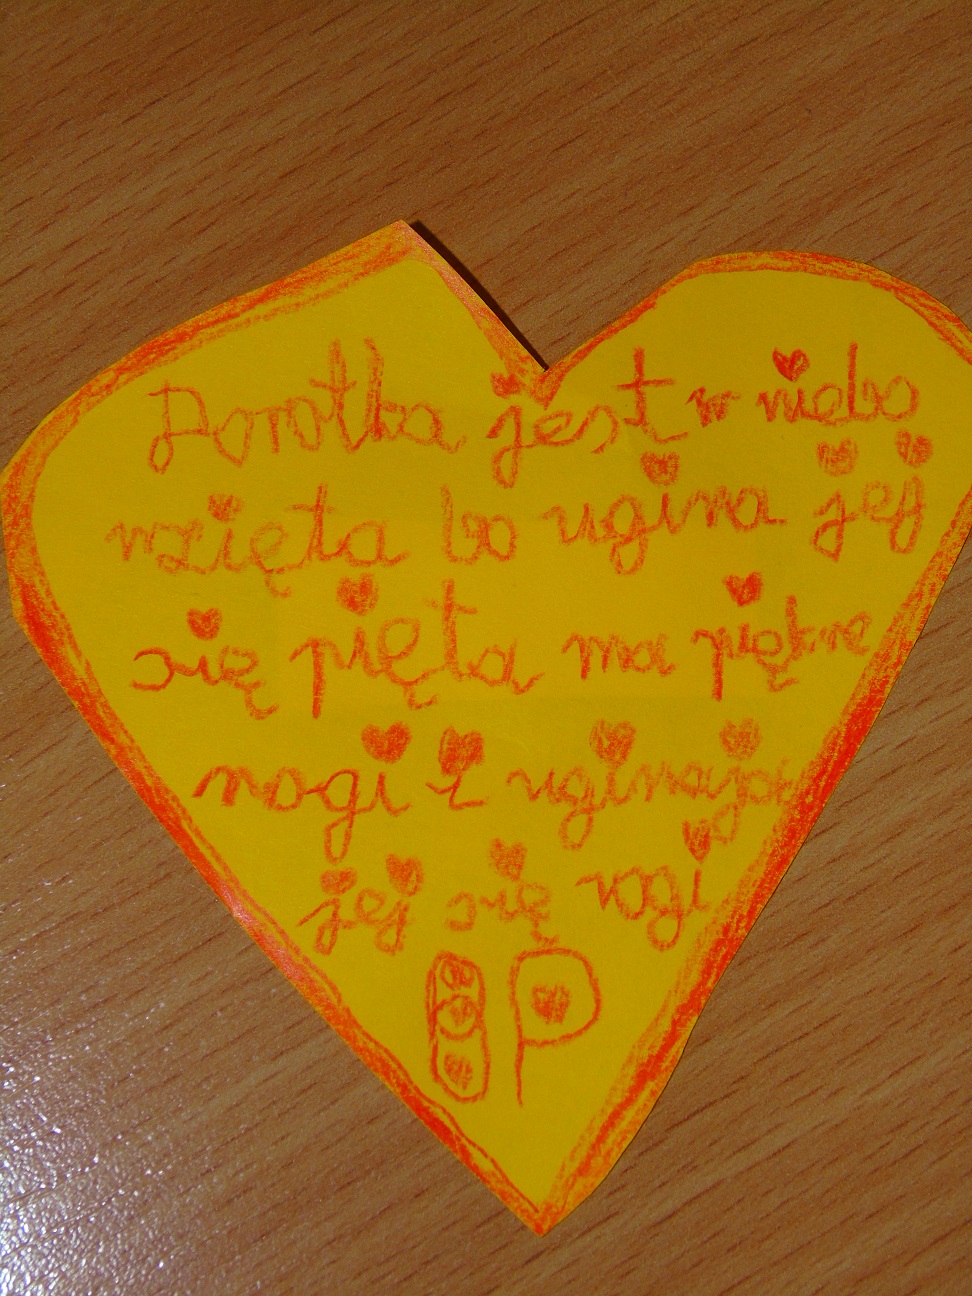 Dorotka jest w niebo
wzięta bo ugina jej
się pięta ma piękne
nogi i uginają
jej się rogi
P